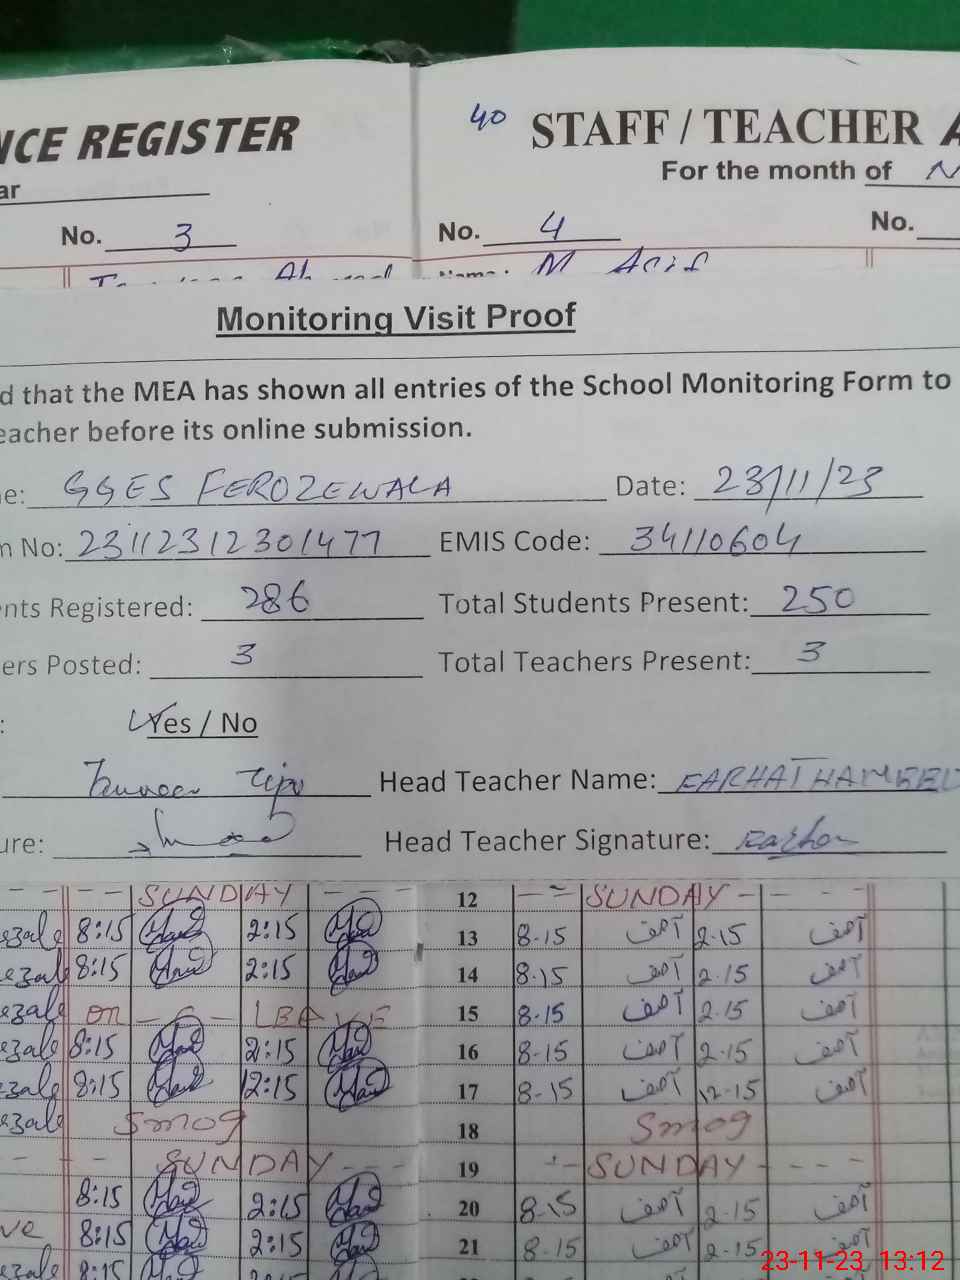 NCE REGISTER
ar
No. 3
40 STAFF / TEACHER A
For the month of N
No. 4 No.
M Acif
Monitoring Visit Proof
d that the MEA has shown all entries of the School Monitoring Form to
eacher before its online submission.
e: GGES FEROZEWALA Date: 23/11/23
n No: 23112312301477 EMIS Code: 34110604
nts Registered: 286 Total Students Present: 250
ers Posted: 3 Total Teachers Present: 3
: Yes / No
Head Teacher Name: FARHAT HAMEED
ure: Head Teacher Signature: Farhat
- - - - SUNDAY - - - 12 - - SUNDAY - - - -
ezale 8:15 2:15 13 8-15 آصف 2-15 آصف
ezale 8:15 2:15 14 8-15 آصف 2-15 آصف
ezale on - C - LEAVE 15 8-15 آصف 2-15 آصف
ezale 8:15 2:15 16 8-15 آصف 2-15 آصف
ezale 8:15 12:15 17 8-15 آصف 12-15 آصف
ezale Smog 18 Smog
- - - SUNDAY - - - 19 - - SUNDAY - - - -
8:15 2:15 20 8-15 آصف 2-15 آصف
ve 8:15 2:15 21 8-15 آصف 2-15
ezale 8:15
23-11-23 13:12